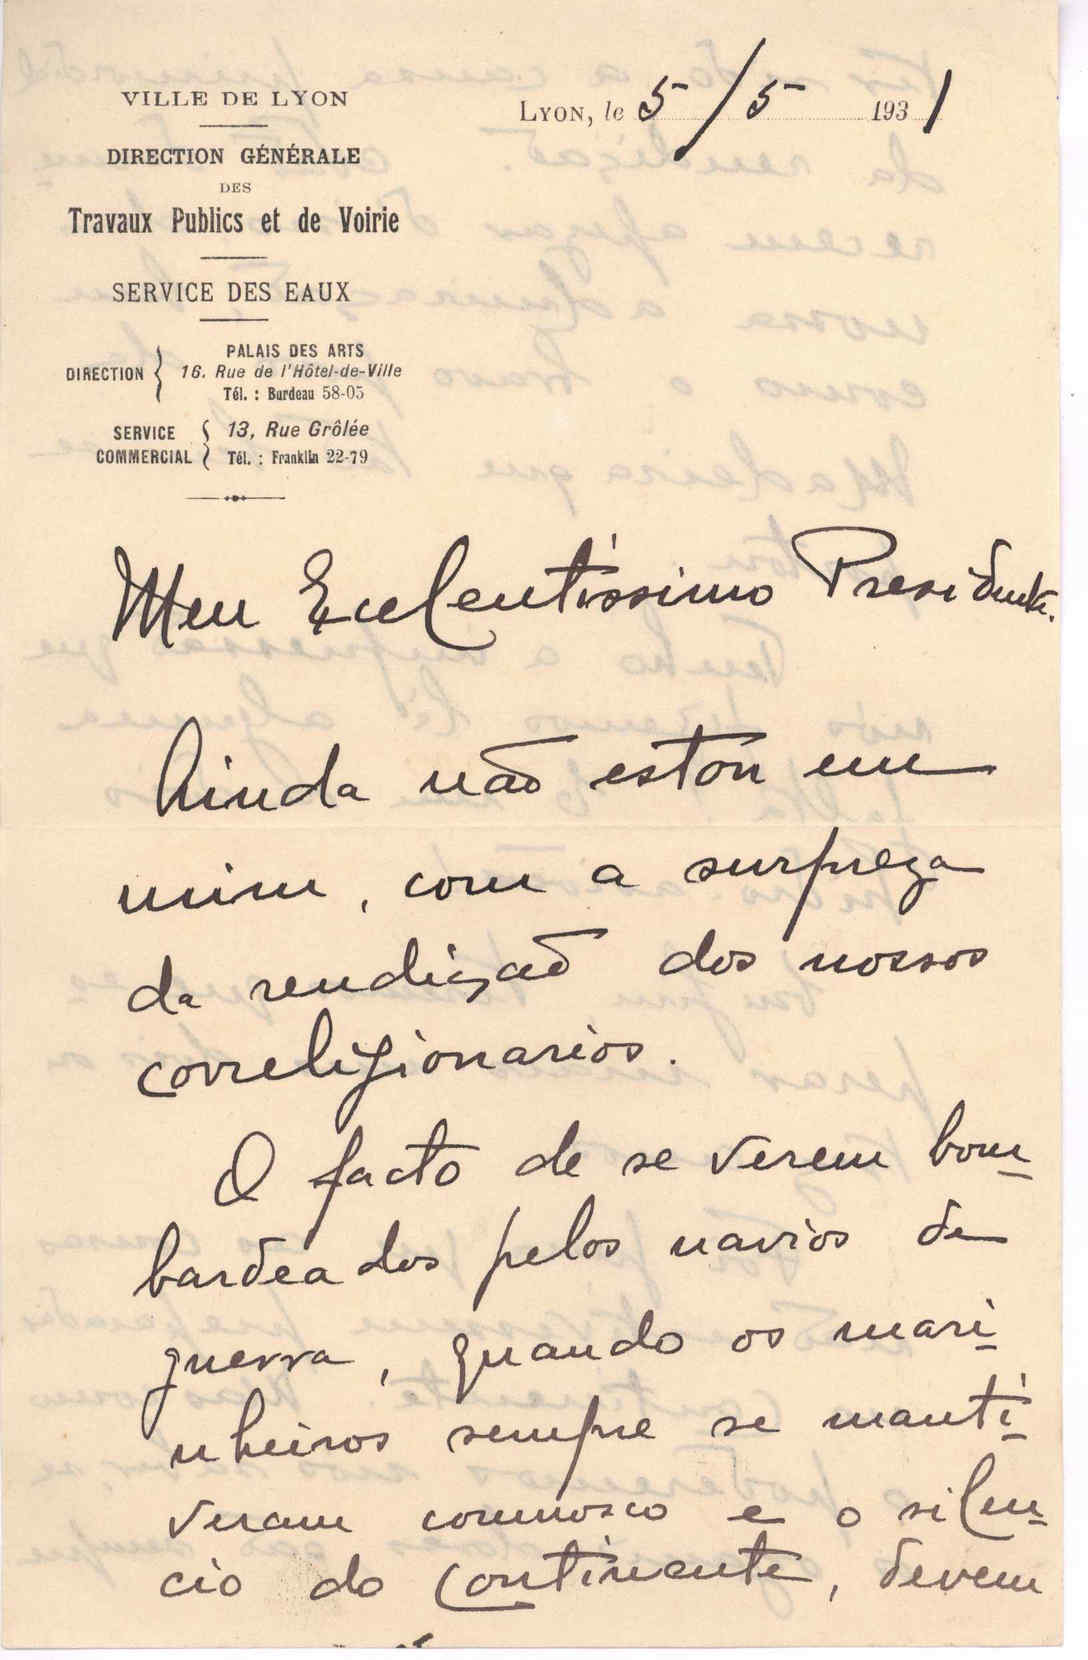 VILLE DE LYON
DIRECTION GÉNÉRALE
DES
Travaux Publics et de Voirie
SERVICE DES EAUX
DIRECTION { PALAIS DES ARTS
16, Rue de l'Hôtel-de-Ville
Tél. : Burdeau 58-05
SERVICE COMMERCIAL { 13, Rue Grôlée
Tél. : Franklin 22-79
LYON, le 5/5 1931
Meu Excelentissimo Presidente.
Ainda não estou em
mim, com a surpreza
da rendição dos nossos
correligionarios.
O facto de se verem bom-
bardeados pelos navios de
guerra, quando os mari-
nheiros sempre se manti-
veram comnosco e o silen-
cio do Continente, devem